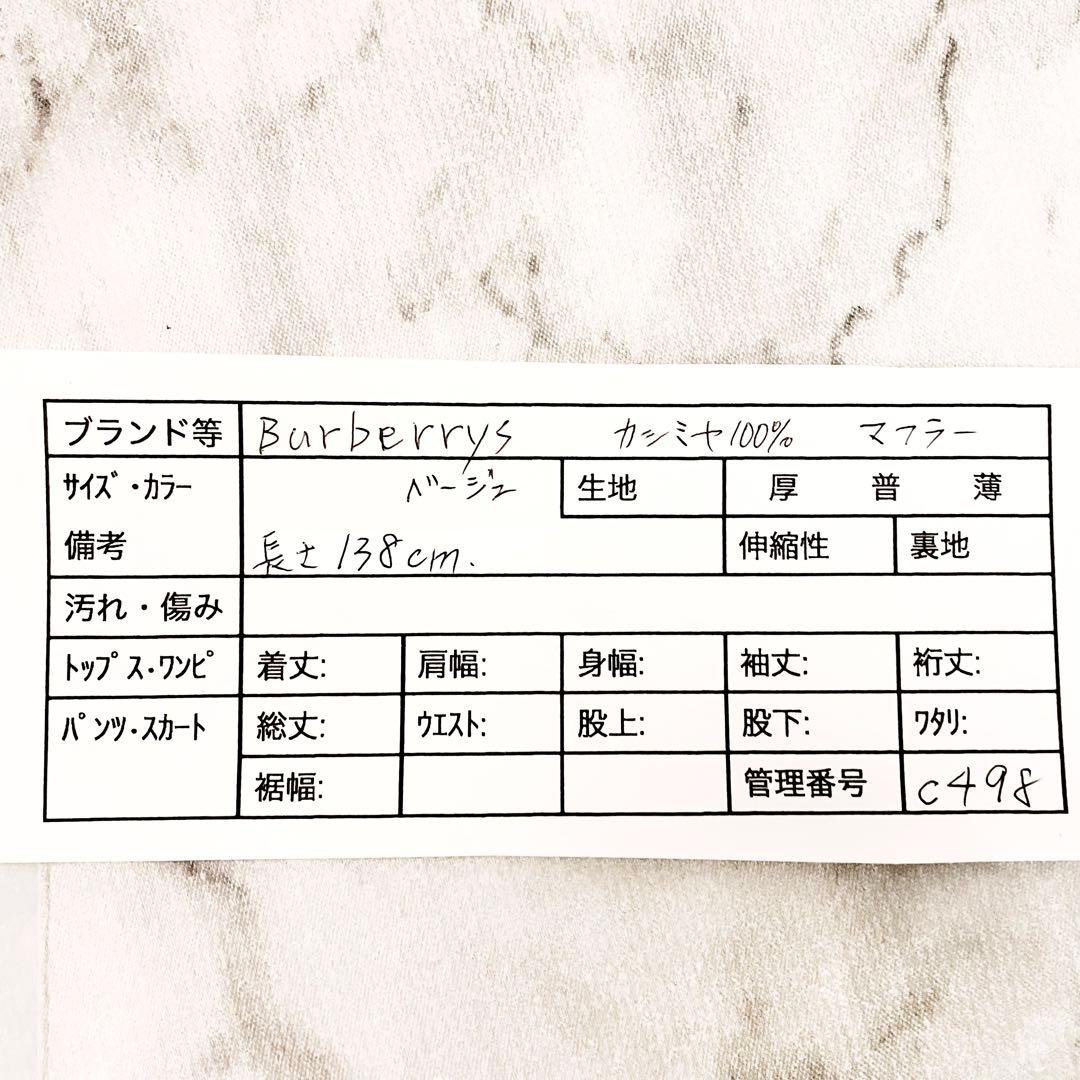 ブランド等 Burberrys カシミヤ100% マフラー
サイズ・カラー ベージュ 生地 厚 普 薄
備考 長さ138cm. 伸縮性 裏地
汚れ・傷み
トップス・ワンピ 着丈: 肩幅: 身幅: 袖丈: 裄丈:
パンツ・スカート 総丈: ウエスト: 股上: 股下: ワタリ:
裾幅: 管理番号 c498